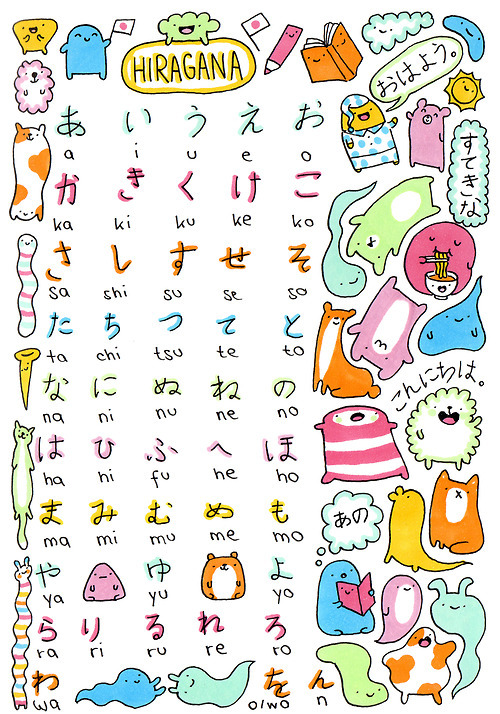 HIRAGANA
おはよう。
あ い う え お
a i u e o
すてきな
か き く け こ
ka ki ku ke ko
さ し す せ そ
sa shi su se so
た ち つ て と
ta chi tsu te to
こんにちは。
な に ぬ ね の
na ni nu ne no
は ひ ふ へ ほ
ha hi fu he ho
ま み む め も
ma mi mu me mo
あの
や ゆ よ
ya yu yo
ら り る れ ろ
ra ri ru re ro
わ を ん
wa o/wo n